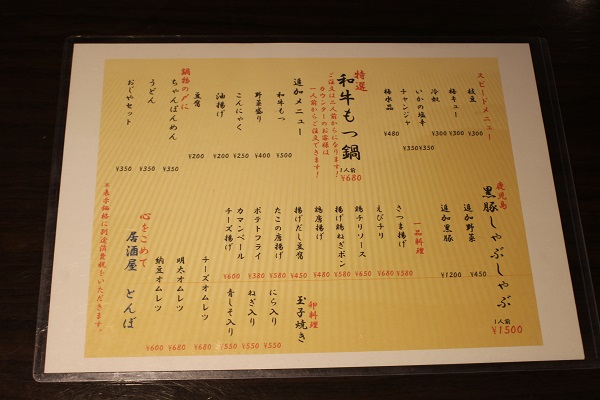 スピードメニュー
枝豆 ¥300
梅キュー ¥300
冷奴 ¥300
いかの塩辛 ¥350
チャンジャ ¥350
梅水晶 ¥480
特選
和牛もつ鍋
1人前
¥680
ご注文は二人前からになります!
カウンターのお客様は
一人前からご注文できます!
追加メニュー
和牛もつ ¥500
野菜盛り ¥400
こんにゃく ¥250
油揚げ ¥200
豆腐 ¥200
鍋物の〆に
ちゃんぽんめん ¥350
うどん ¥350
おじやセット ¥350
鹿児島
黒豚しゃぶしゃぶ
1人前
¥1500
追加野菜 ¥450
追加黒豚 ¥1200
一品料理
さつま揚げ ¥580
えびチリ ¥680
鶏チリソース ¥650
揚げ鶏ねぎポン ¥580
鶏唐揚げ ¥480
揚げだし豆腐 ¥450
たこの唐揚げ ¥580
ポテトフライ ¥380
カマンベール
チーズ揚げ ¥600
卵料理
玉子焼き
にら入り ¥550
ねぎ入り ¥550
青しそ入り ¥550
チーズオムレツ ¥680
明太オムレツ ¥680
納豆オムレツ ¥680
心をこめて
居酒屋 とんぼ
※表示価格に別途消費税をいただきます。